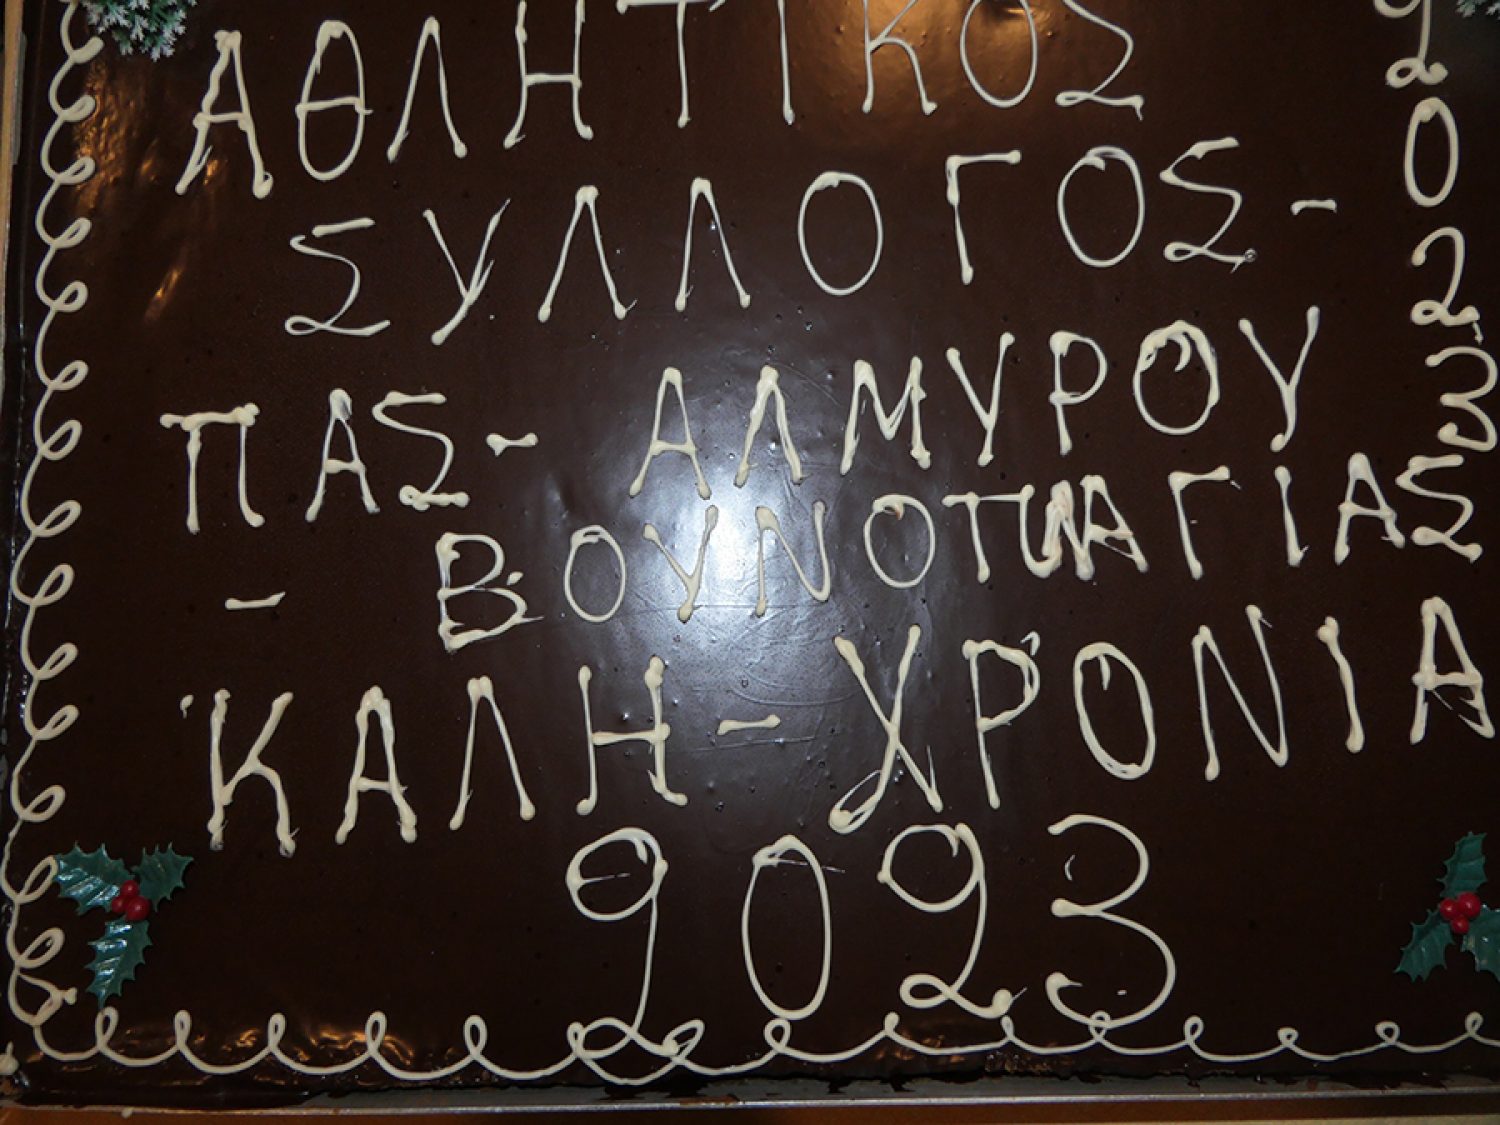 ΑΘΛΗΤΙΚΟΣ
ΣΥΛΛΟΓΟΣ -
ΠΑΣ - ΑΛΜΥΡΟΥ
- ΒΟΥΝΟΠΑΓΙΑΣ
ΚΑΛΗ - ΧΡΟΝΙΑ
2023
2023